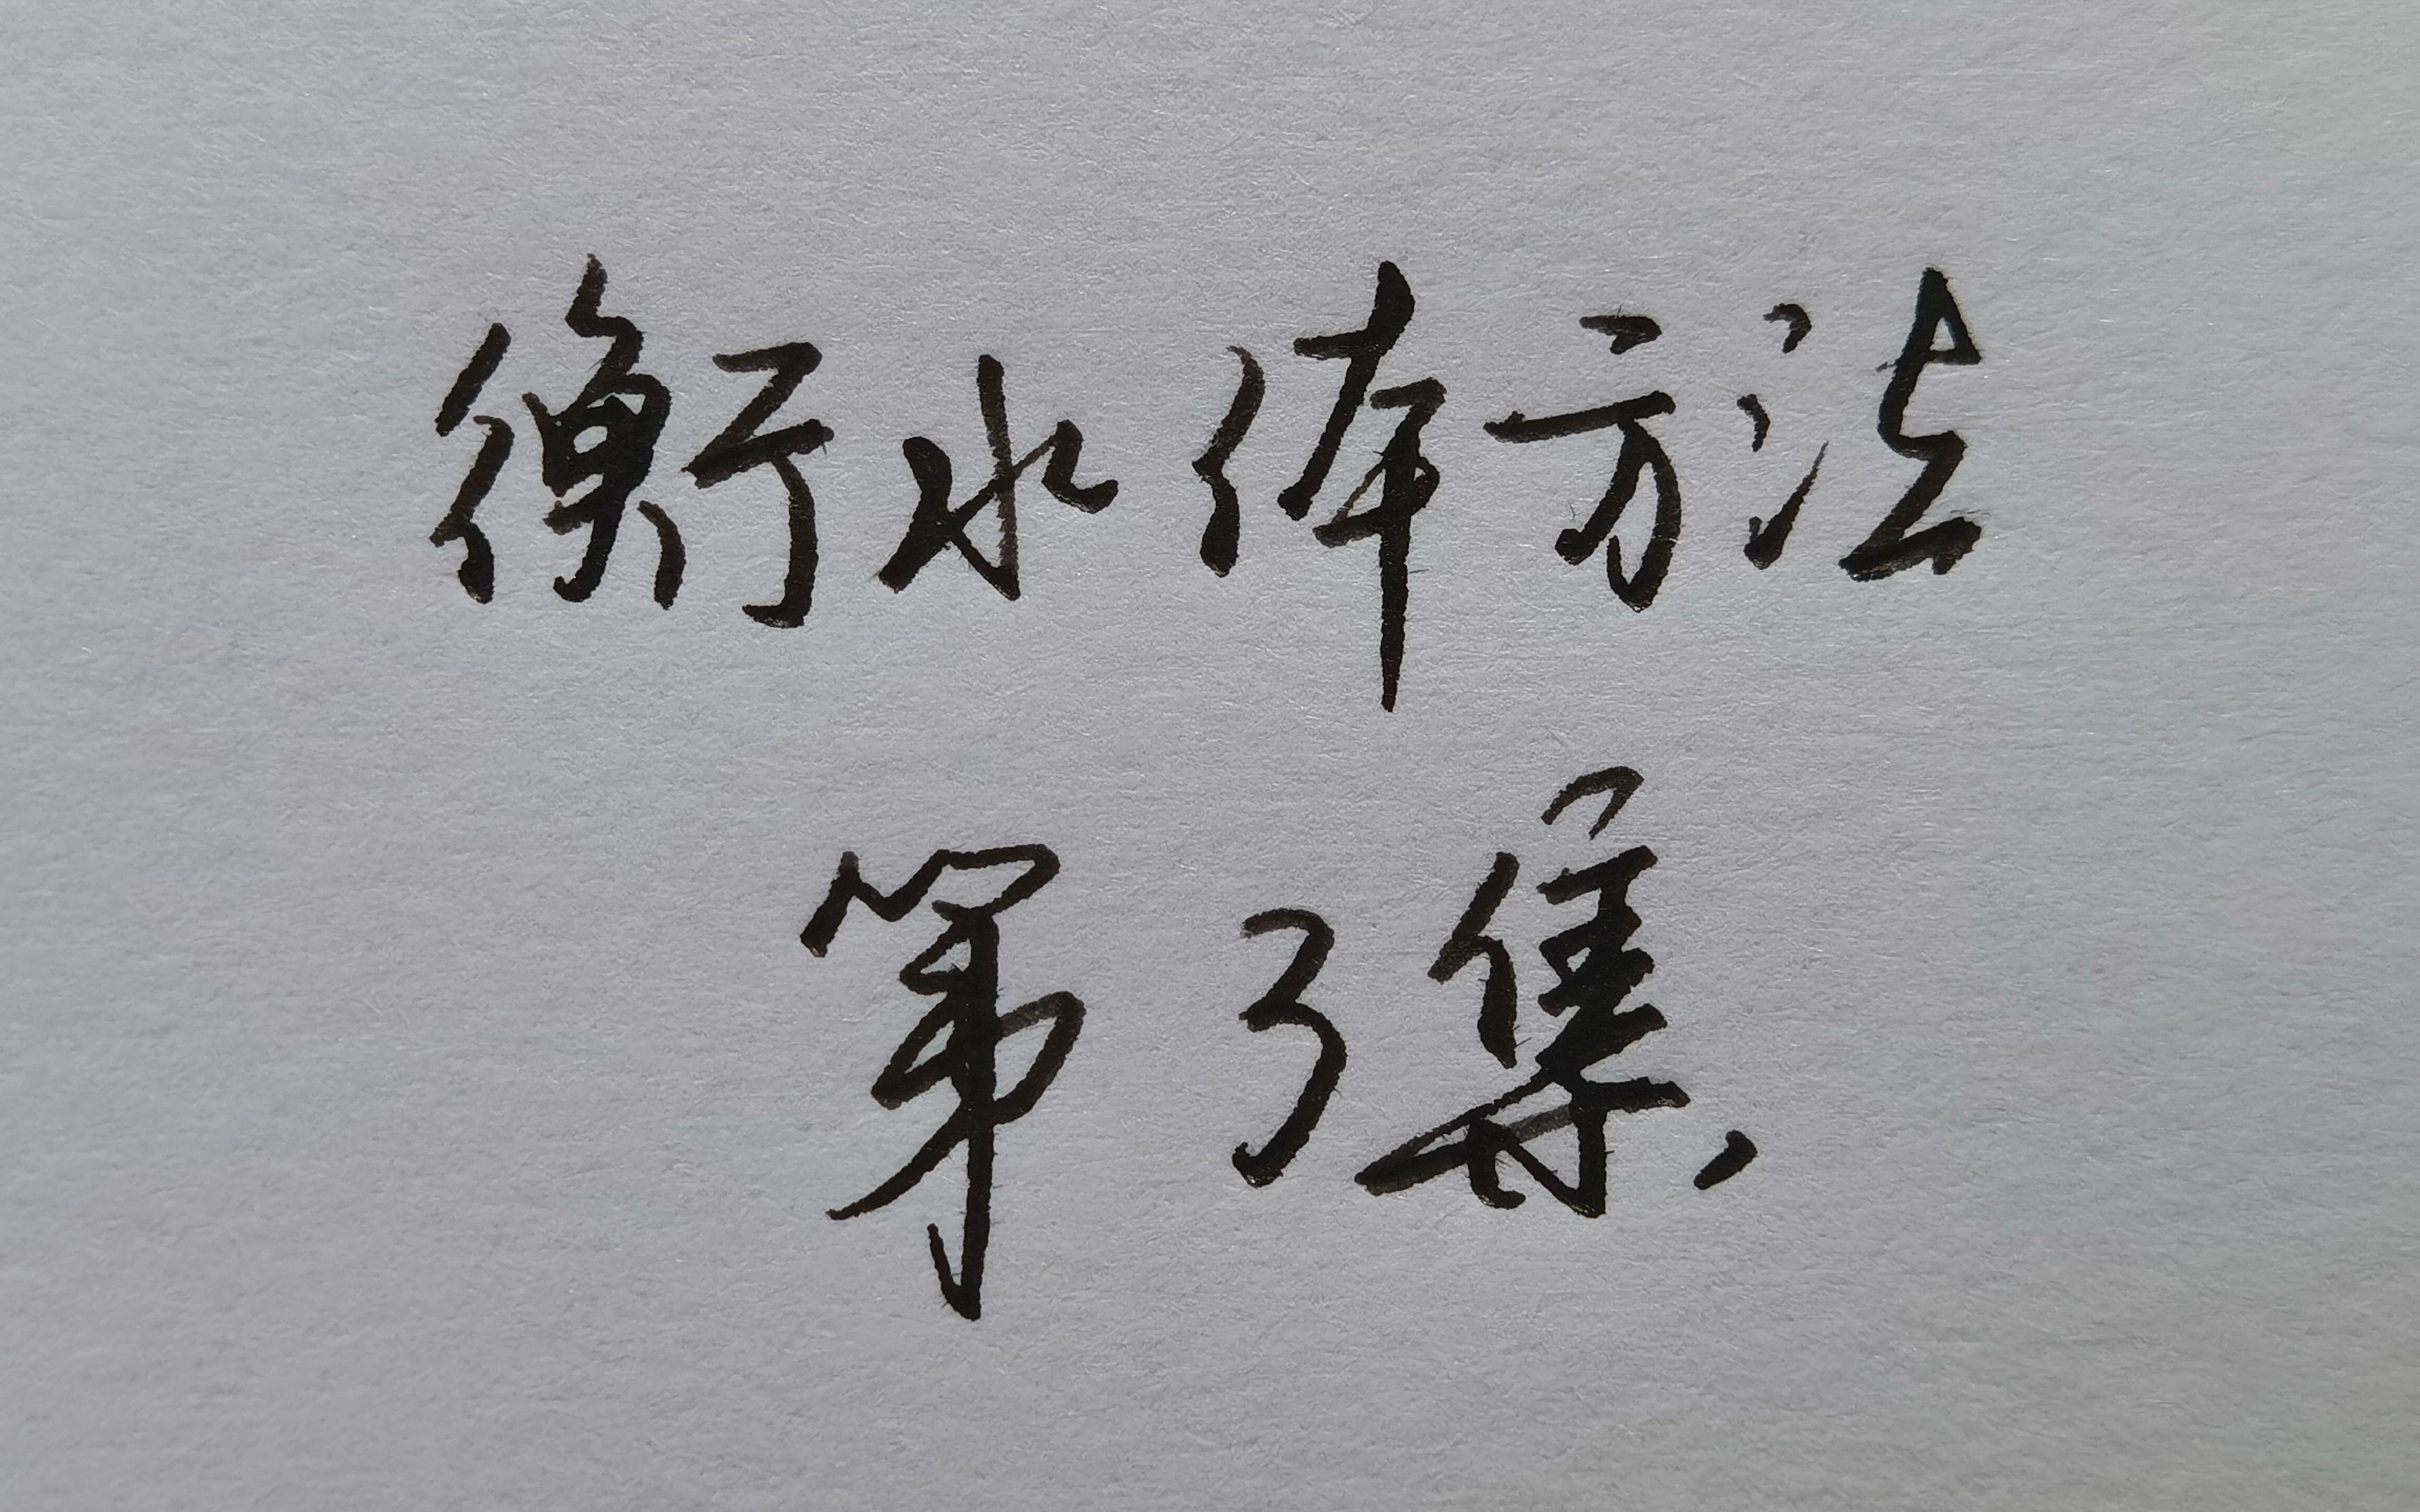 衡水体方法
第3集